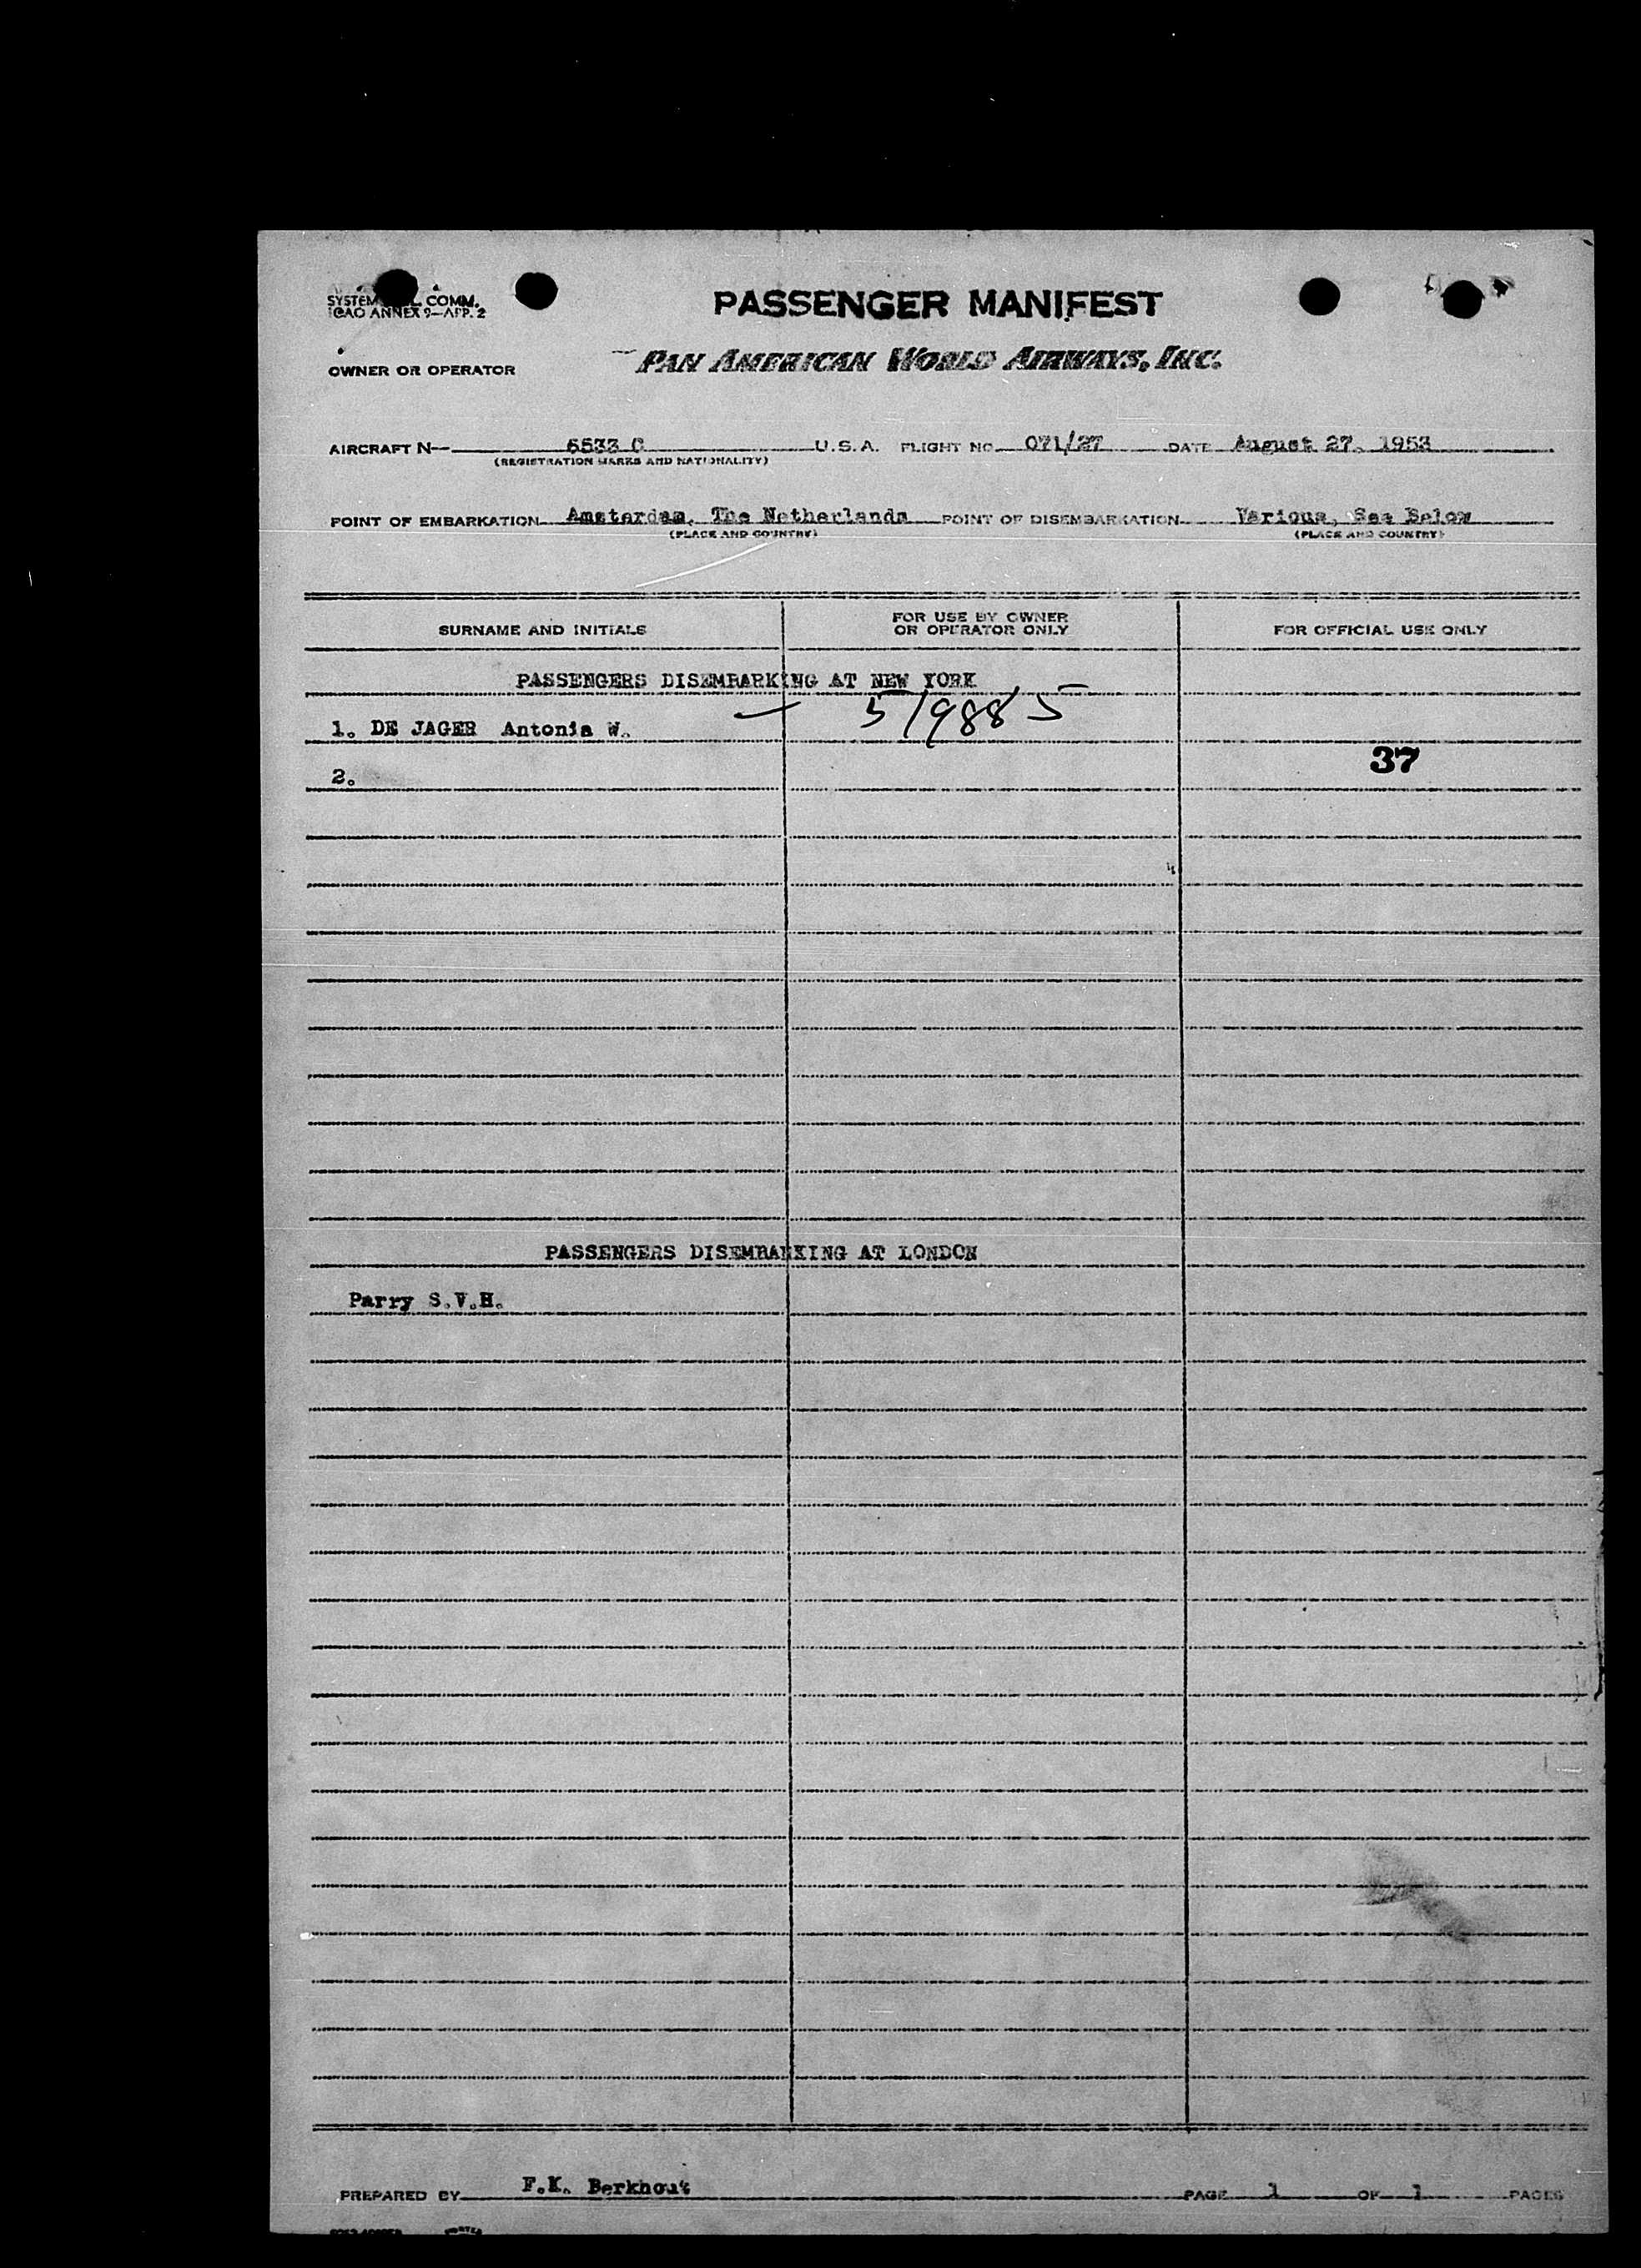 PASSENGER MANIFEST
SYSTEM COMM.
ICAO ANNEX 9—APP. 2
OWNER OR OPERATOR PAN AMERICAN WORLD AIRWAYS, INC.
AIRCRAFT N— 6533 C U.S.A. FLIGHT NO. 071/27 DATE August 27, 1953
(REGISTRATION MARKS AND NATIONALITY)
POINT OF EMBARKATION Amsterdam, The Netherlands POINT OF DISEMBARKATION Various, See Below
(PLACE AND COUNTRY) (PLACE AND COUNTRY)
SURNAME AND INITIALS FOR USE BY OWNER OR OPERATOR ONLY FOR OFFICIAL USE ONLY
PASSENGERS DISEMBARKING AT NEW YORK
1. DE JAGER Antonia W. 5/9885
37
2.
PASSENGERS DISEMBARKING AT LONDON
Parry S.V.H.
PREPARED BY F.K. Berkhout PAGE 1 OF 1 PAGES